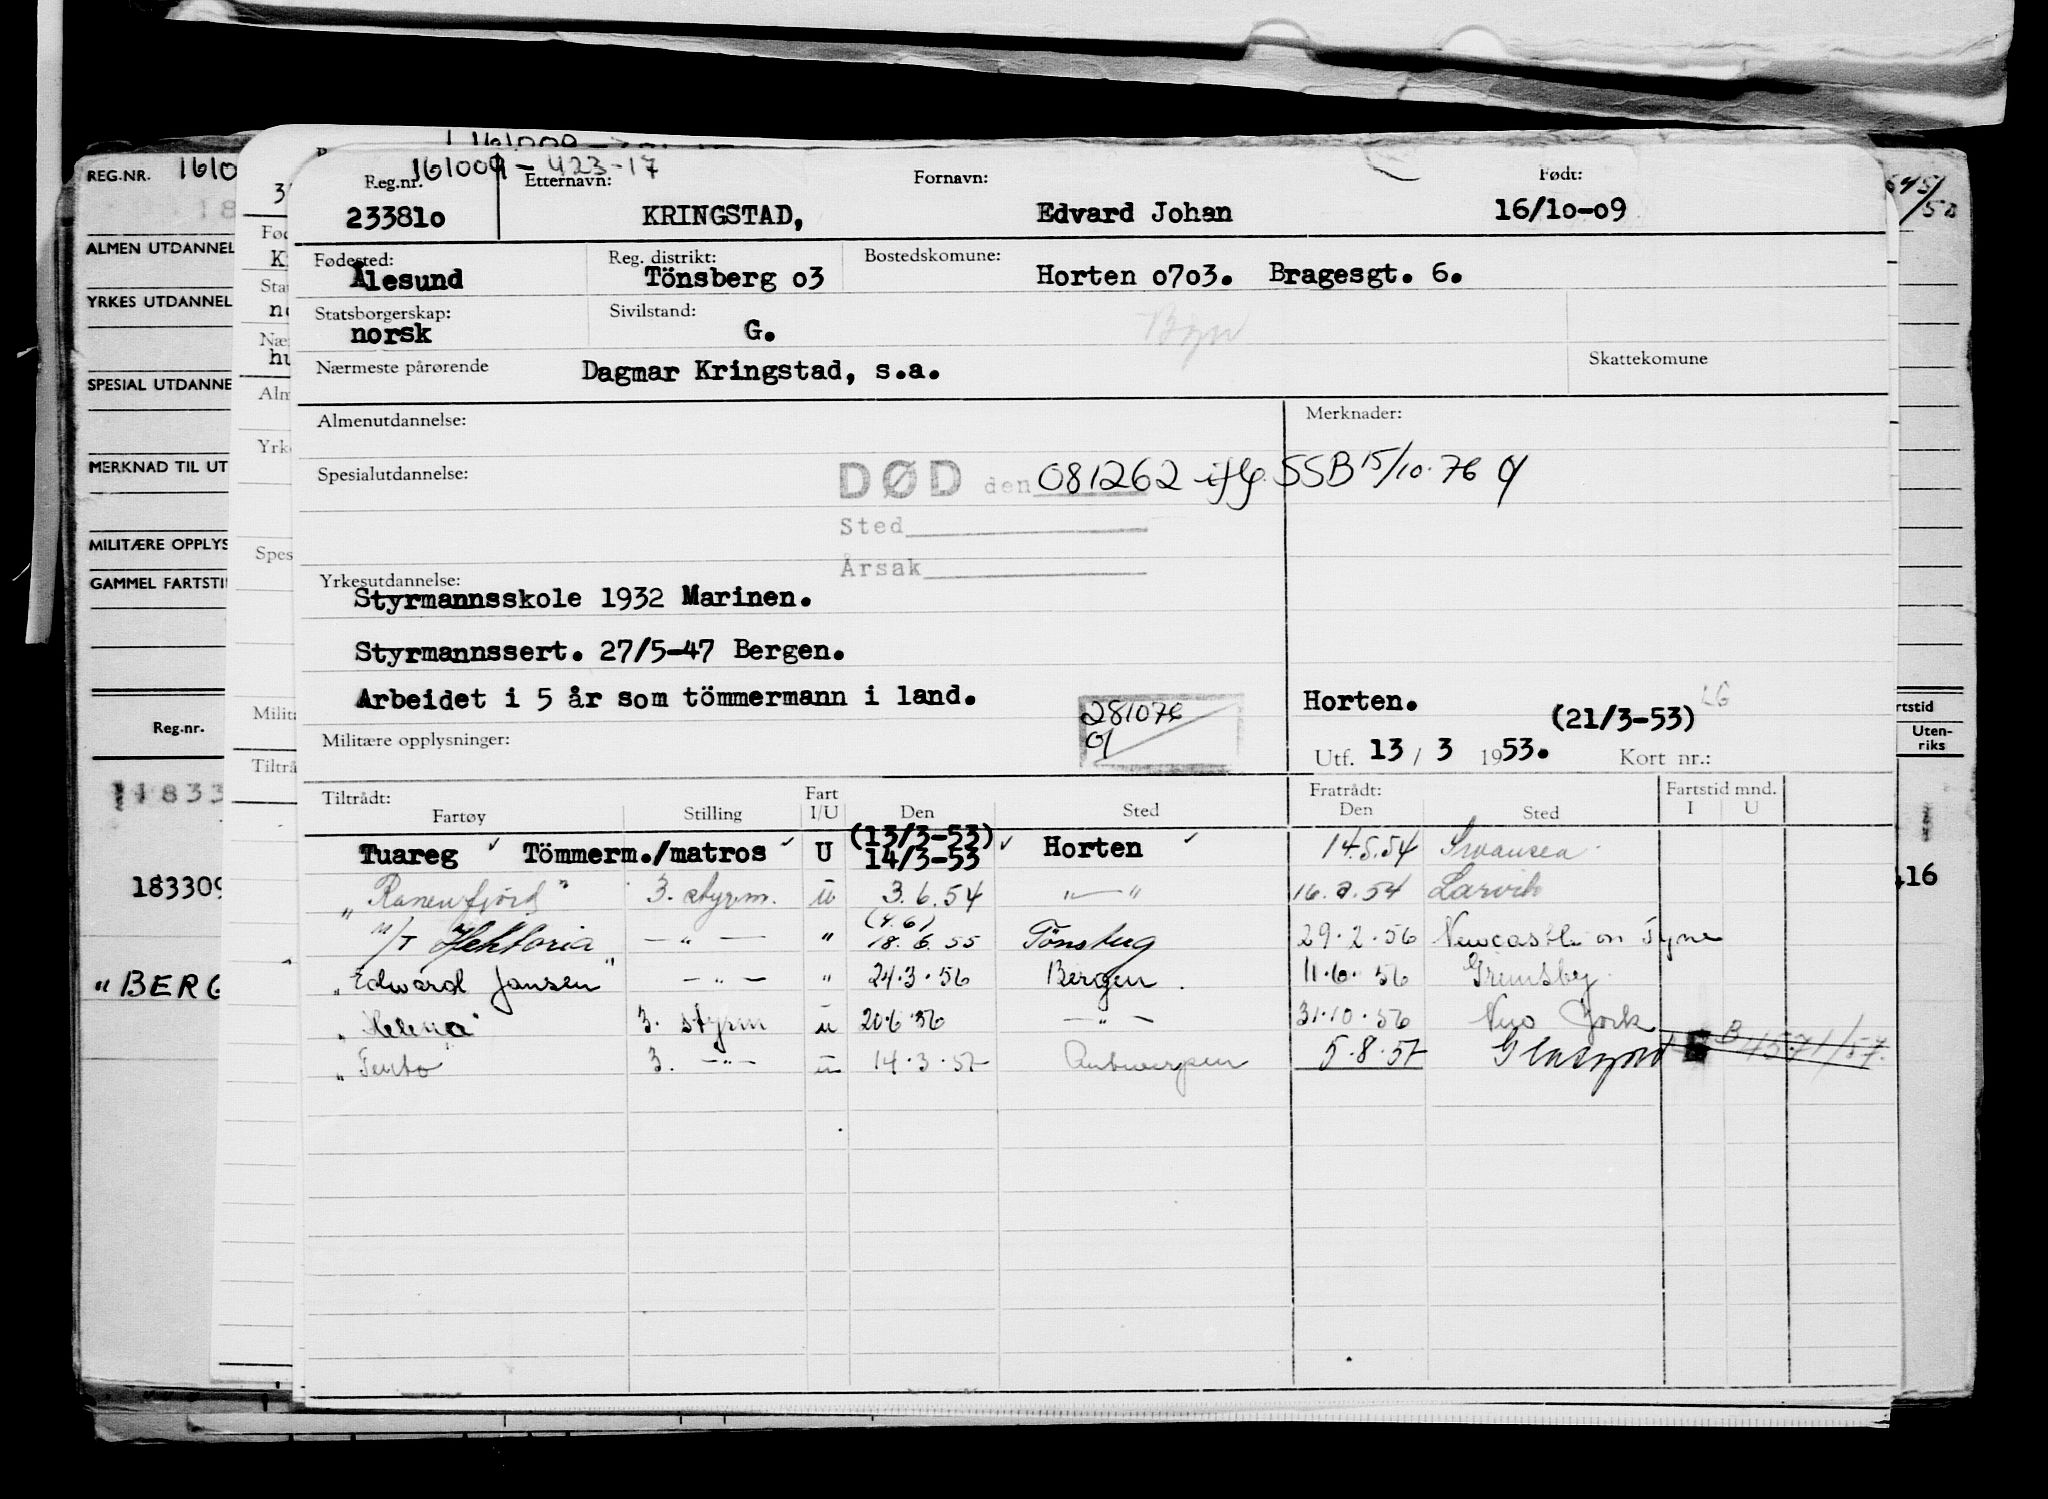 161009-423-17
Reg.nr. Etternavn: Fornavn: Født:
233810 KRINGSTAD, Edvard Johan 16/10-09
Fødested: Reg. distrikt: Bostedskomune:
Ålesund Tönsberg 03 Horten 0703. Bragesgt. 6.
Statsborgerskap: Sivilstand:
norsk G.
Nærmeste pårørende Dagmar Kringstad, s.a. Skattekomune
Almenutdannelse: Merknader:
Spesialutdannelse: DØD den 081262 iflg. SSB 15/10-76
Sted
Årsak
Yrkesutdannelse:
Styrmannsskole 1932 Marinen.
Styrmannssert. 27/5-47 Bergen.
Arbeidet i 5 år som tömmermann i land. Horten.
281076 (21/3-53)
Militære opplysninger: Utf. 13 / 3 1953. Kort nr.:
Tiltrådt: Fart Fratrådt: Fartstid mnd.
Fartøy Stilling I/U Den Sted Den Sted I U
(13/3-53)
Tuareg Tömmerm./matros U 14/3-53 Horten 14.5.54 Swansea
"Ranenfjord" 3. styrm. u 3.6.54 " — " 16.8.54 Larvik
(4.6)
M/T Hektoria — " — " 18.6.55 Tönsberg 29.2.56 Newcastle on Tyne
"Edward Jansen" — " — " 24.3.56 Bergen. 11.6.56 Grimsby
"Helena" 3. styrm u 20.6.56 — " — 31.10.56 New York
3. — " — u 14.3.57 Antwerpen 5.8.57 B 4571/57.
REG.NR. 1610
ALMEN UTDANNEL
YRKES UTDANNEL
SPESIAL UTDANNE
MERKNAD TIL UT
MILITÆRE OPPLYS
GAMMEL FARTSTI
Reg.nr.
1833
183309
"BERG
Fød
K
Stat
no
Næ
hu
Alm
Yrk
Spes
Milit
Tiltrå
645/52
rtstid
Uten-
riks
416